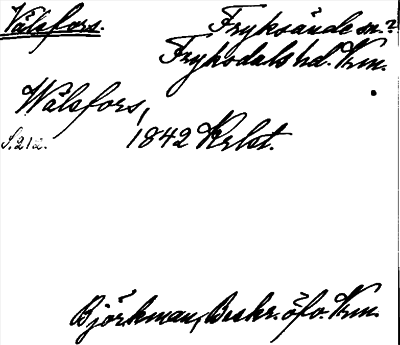 Vålsfors. Fryksände sn.?
Fryksdals hd. Vrm.
Wålsfors,
S. 212. 1842 Krlst.
Björkman, Beskr. öfv. Vrm.